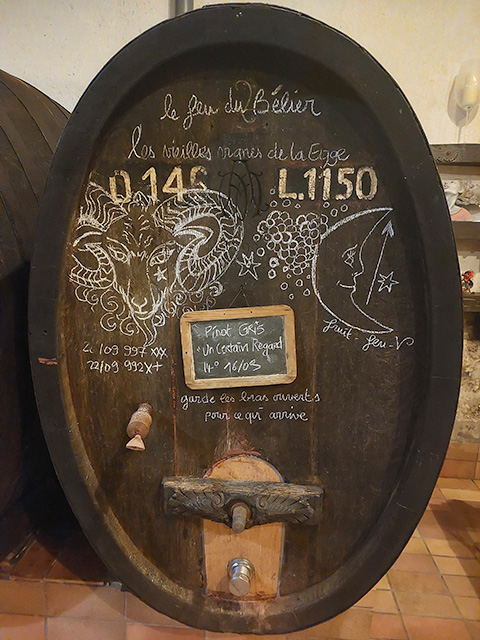 le feu du Bélier
les vieilles vignes de la Etzge
D.146 L.1150
Fruit - Feu - V
Pinot Gris
"Un Certain Regard
14° 16/09
21/09 997 XXX
22/09 992 X+
garde les bras ouverts
pour ce qui arrive